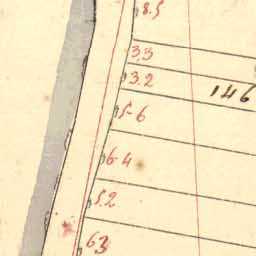 8.5
3.3
3.2
146
5-6
6-4
5.2
63